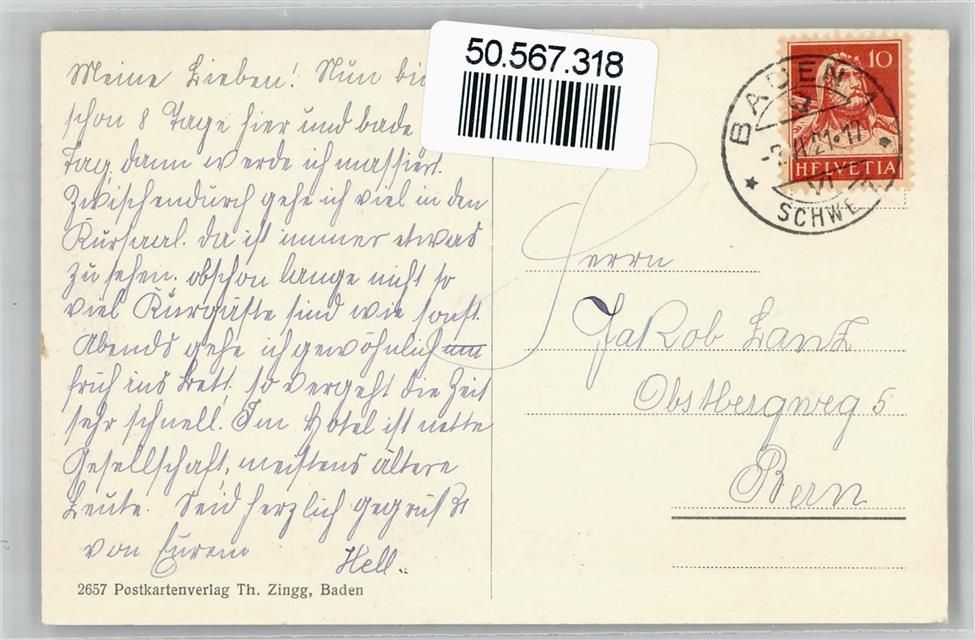 Meine Lieben! Nun bi
schon 8 Tage hier und bade
Tag, dann werde ich massiert.
Zwischendurch gehe ich viel in den
Kursaal. da ist immer etwas
zu sehen. obschon lange nicht so
viel Kurgäste sind wie sonst.
Abends gehe ich gewöhnlich
früh ins Bett, so vergeht die Zeit
sehr schnell. Im Hotel ist nette
Gesellschaft, meistens ältere
Leute. Seid herzlich gegrüßt
von Eurem
Hell.
2657 Postkartenverlag Th. Zingg, Baden
50.567.318
10
HELVETIA
BADEN
SCHWE
Herrn
Jakob Lanz
Obstbergweg 5
Bern